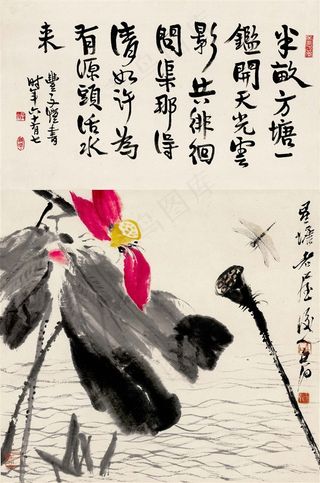 半畝方塘一
鑑開天光雲
影共徘徊
問渠那得
清如許為
有源頭活水
来
豐子愷書
时年六十有七
星塘老屋後人白石